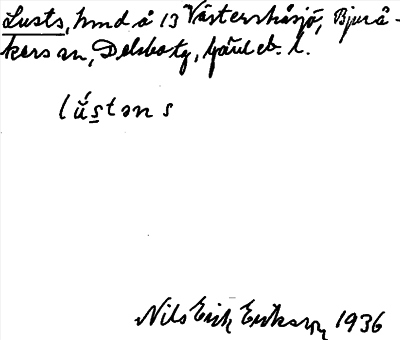 Lusts, hmd å 13 Västerstråsjö, Bjurå-
kers sn, Delsbo tg, Gävleb. l.
lu̾s̲tən s
Nils Erik Erikson 1936